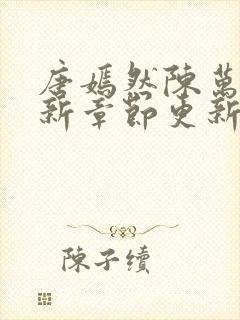 唐嫣然陳萬
新章節更新
陳子續